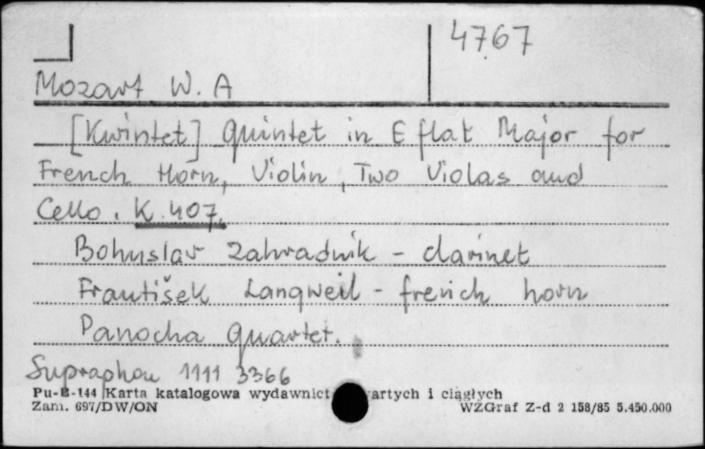 4767
Mozart W. A
[Kwintet] Quintet in E flat Major for
French Horn, Violin, Two Violas and
Cello. K. 407.
Bohuslav Zahradnik - clarinet
František Langweil - french horn
Panocha Quartet.
Supraphon 1111 3366
Pu-B-144 Karta katalogowa wydawnict artych i ciągłych
Zam. 697/DW/ON WZGraf Z-d 2 158/85 5.450.000